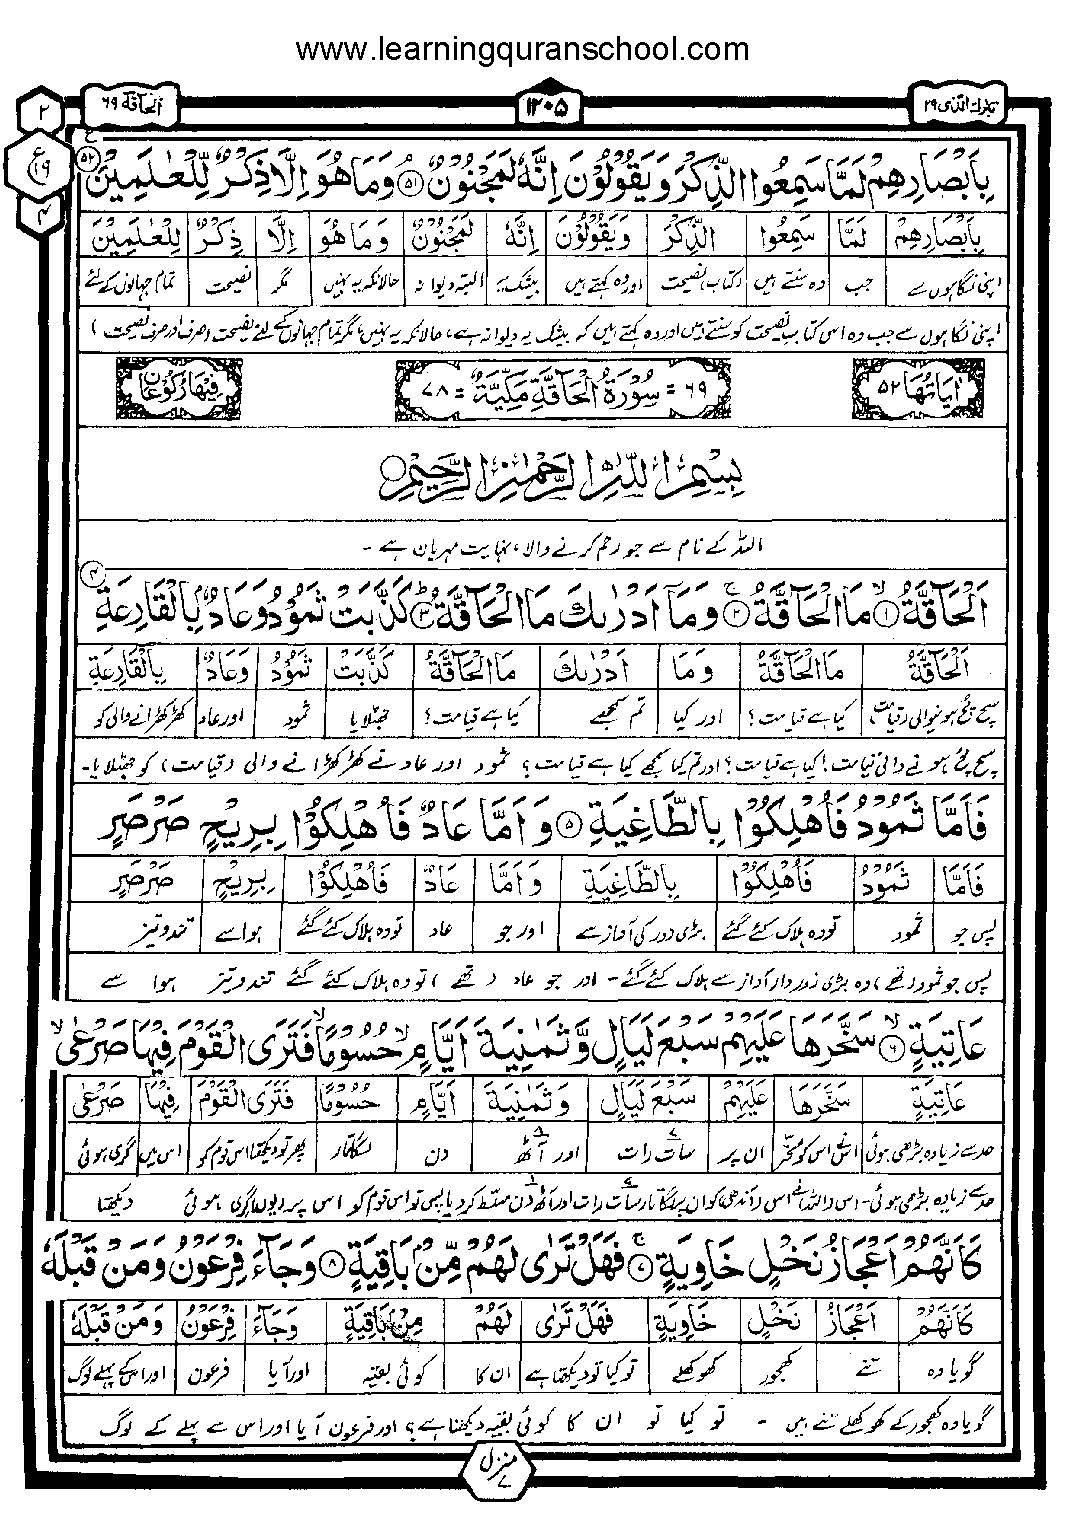 www.learningquranschool.com
تبٰرك الذى ٢٩
١٢٠٥
الحآقة ٦٩
٢
ع
١٩
٤
بِاَبْصَارِهِمْ لَمَّا سَمِعُوا الذِّكْرَ وَيَقُوْلُوْنَ اِنَّهٗ لَمَجْنُوْنٌ ۝٥١ وَمَا هُوَ اِلَّا ذِكْرٌ لِّلْعٰلَمِيْنَ ۝٥٢
بِاَبْصَارِهِمْ لَمَّا سَمِعُوا الذِّكْرَ وَيَقُوْلُوْنَ اِنَّهٗ لَمَجْنُوْنٌ وَمَا هُوَ اِلَّا ذِكْرٌ لِلْعٰلَمِيْنَ
اپنی نگاہوں سے جب وہ سنتے ہیں کتاب نصیحت اور وہ کہتے ہیں بیشک یہ البتہ دیوانہ حالانکہ یہ نہیں مگر نصیحت تمام جہانوں کے لئے
اپنی نگاہوں سے جب وہ اس کتاب نصیحت کو سنتے ہیں اور وہ کہتے ہیں کہ بیشک یہ دیوانہ ہے، حالانکہ یہ نہیں، مگر تمام جہانوں کے لئے نصیحت (صرف اور صرف نصیحت)
اٰيَاتُهَا ٥٢
٦٩ = سُوْرَةُ الْحَآقَّةِ مَكِّيَّةٌ = ٧٨
فِيْهَا رُكُوْعَانِ
بِسْمِ اللّٰهِ الرَّحْمٰنِ الرَّحِيْمِ
اللہ کے نام سے جو رحم کرنے والا، نہایت مہربان ہے -
اَلْحَآقَّةُ ۝١ مَا الْحَآقَّةُ ۝٢ وَمَآ اَدْرٰىكَ مَا الْحَآقَّةُ ۝٣ كَذَّبَتْ ثَمُوْدُ وَعَادٌۢ بِالْقَارِعَةِ ۝٤
اَلْحَآقَّةُ مَا الْحَآقَّةُ وَمَا اَدْرٰىكَ مَا الْحَآقَّةُ كَذَّبَتْ ثَمُوْدُ وَعَادٌ بِالْقَارِعَةِ
سچ مچ ہونیوالی (قیامت) کیا ہے قیامت؟ اور کیا تم سمجھے کیا ہے قیامت؟ جھٹلایا ثمود اور عاد کھڑکھڑانے والی کو
سچ مچ ہونے والی قیامت! کیا ہے قیامت؟ اور تم کیا سمجھے کیا ہے قیامت؟ ثمود اور عاد نے کھڑکھڑانے والی (قیامت) کو جھٹلایا-
فَاَمَّا ثَمُوْدُ فَاُهْلِكُوْا بِالطَّاغِيَةِ ۝٥ وَاَمَّا عَادٌ فَاُهْلِكُوْا بِرِيْحٍ صَرْصَرٍ
فَاَمَّا ثَمُوْدُ فَاُهْلِكُوْا بِالطَّاغِيَةِ وَاَمَّا عَادٌ فَاُهْلِكُوْا بِرِيْحٍ صَرْصَرٍ
پس جو ثمود تو وہ ہلاک کئے گئے بڑی زور کی آواز سے اور جو عاد تو وہ ہلاک کئے گئے ہوا سے تند و تیز
پس جو ثمود (تھے) وہ بڑی زوردار آواز سے ہلاک کئے گئے- اور جو عاد (تھے) تو وہ ہلاک کئے گئے تند و تیز ہوا سے
عَاتِيَةٍ ۝٦ سَخَّرَهَا عَلَيْهِمْ سَبْعَ لَيَالٍ وَّثَمٰنِيَةَ اَيَّامٍ حُسُوْمًا فَتَرَى الْقَوْمَ فِيْهَا صَرْعٰى
عَاتِيَةٍ سَخَّرَهَا عَلَيْهِمْ سَبْعَ لَيَالٍ وَثَمٰنِيَةَ اَيَّامٍ حُسُوْمًا فَتَرَى الْقَوْمَ فِيْهَا صَرْعٰى
حد سے زیادہ بڑھی ہوئی اس نے اس کو مسخر ان پر سات رات اور آٹھ دن لگاتار پھر تو دیکھتا اس قوم کو اس میں گری ہوئی
حد سے زیادہ بڑھی ہوئی- اس (اللہ) نے اس (آندھی) کو ان پر لگاتار سات رات اور آٹھ دن مسلط کر دیا پس تو اس قوم کو اس پر یوں گری ہوئی دیکھتا
كَاَنَّهُمْ اَعْجَازُ نَخْلٍ خَاوِيَةٍ ۝٧ فَهَلْ تَرٰى لَهُمْ مِّنْۢ بَاقِيَةٍ ۝٨ وَجَآءَ فِرْعَوْنُ وَمَنْ قَبْلَهٗ
كَاَنَّهُمْ اَعْجَازُ نَخْلٍ خَاوِيَةٍ فَهَلْ تَرٰى لَهُمْ مِنْ بَاقِيَةٍ وَجَآءَ فِرْعَوْنُ وَمَنْ قَبْلَهٗ
گویا وہ تنے کھجور کھوکھلے تو کیا تو دیکھتا ہے ان کا کوئی بقیہ اور آیا فرعون اور اس کے پہلے لوگ
گویا وہ کھجور کے کھوکھلے تنے ہیں - تو کیا تو ان کا کوئی بقیہ دیکھتا ہے؟ اور فرعون آیا اور اس سے پہلے کے لوگ
منزل
٧